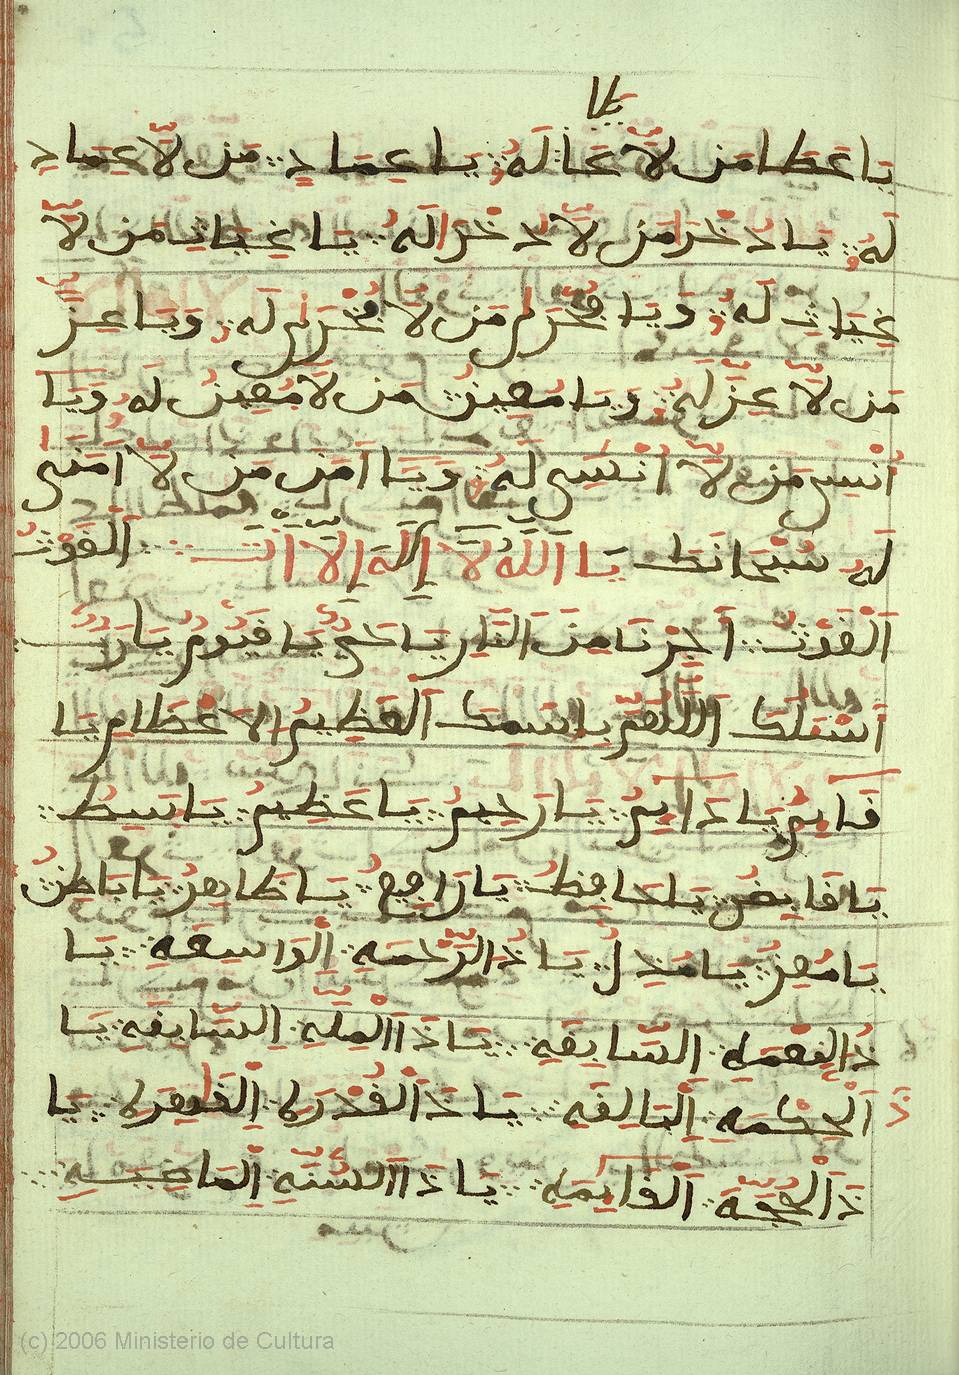 طا
يَا عَطَا مَن لَّا عَطَا لَهُ يَا عِمَادِ مَن لَّا عِمَادِ
لَهُ يَا ذُخْرَ مَن لَّا ذُخْرَ لَهُ يَا غِيَاثَ مَن لَّا
غِيَاثَ لَهُ وَيَا مَن لَّا لَهُ وَيَا عِزَّ
مَن لَّا عِزَّ لَهُ وَيَا مُعِينُ مَن لَّا مُعِينُ لَهُ وَيَا
أَنِيسَ مَن لَّا أَنِيسَ لَهُ وَيَا مَن لَّا
لَهُ سُبْحَانَكَ يَا اَللَّهُ لَا إِلَهَ إِلَّا أَنْتَ اَلْغَوْثُ
اَلْغَوْثُ أَجِرْنَا مِنَ النَّارِ يَا حَيُّ يَا قَيُّومُ يَا رَبُّ
أَسْئَلُكَ اَللَّهُمَّ بِاسْمِكَ اَلْعَظِيمُ الَاعْظَامِ يَا
قَايِمُ يَا دَايِمُ يَا رَحِيمُ يَا عَظِيمُ يَا بَسِيطُ
يَا قَابِضُ يَا حَافِظُ يَا رَافِعُ يَا ظَاهِرُ يَا بَاطِنُ
يَا مُعِزُّ يَا مُذِلُّ يَا ذُ الرَّحْمَةِ اَلْوَاسِعَةِ يَا
ذُ النِعْمَةِ السَّابِغَةِ يَا ذَا السَّابِقَةِ يَا
ذَ اَلْحِكْمَةِ اِلْبَالِغَةِ يَا ذَ اَلْقُدْرَةِ اِلْقَاهِرَةِ يَا
ذَ اَلْحُجَّةِ اَلْقَايِمَةِ يَا ذَا السُنَّةِ اِلْمَاضِيَةِ